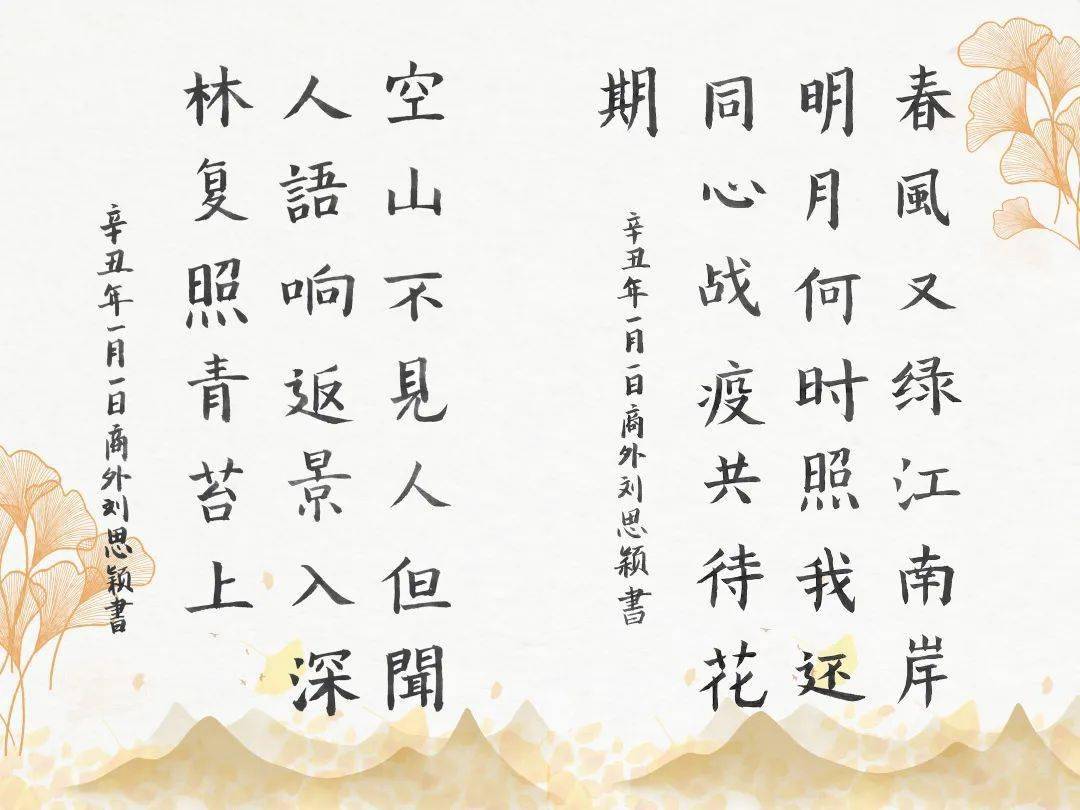 春風又绿江南岸
明月何时照我还
同心战疫共待花
期
辛丑年一月一日商外刘思颖書
空山不見人但聞
人語响返景入深
林复照青苔上
辛丑年一月一日商外刘思颖書